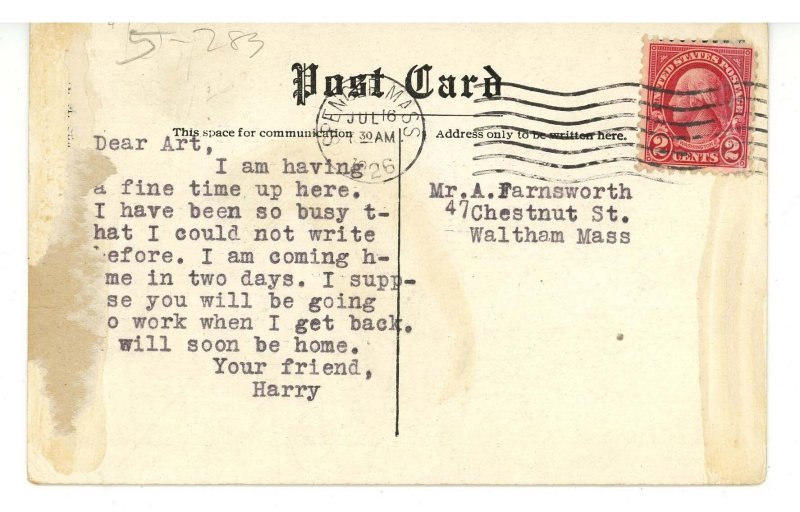 5-283
Post Card
This space for communication
Address only to be written here.
SPENCER, MASS.
JUL 16
30 AM
1926
UNITED STATES POSTAGE
WASHINGTON
2 CENTS 2
Dear Art,
I am having
a fine time up here.
I have been so busy t-
hat I could not write
efore. I am coming h-
me in two days. I supp-
se you will be going
o work when I get back.
will soon be home.
Your friend,
Harry
Mr.A.Farnsworth
47Chestnut St.
Waltham Mass